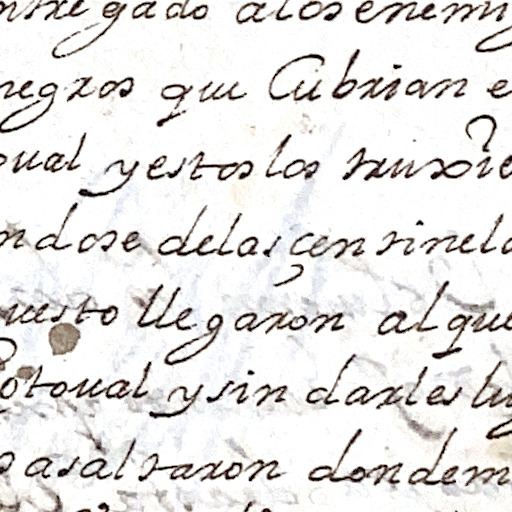 ntregado alos enemig
negros que Cubrian e
oual y estos los truxie
ndose delas çentinela
uesto llegaron al que
otoual y sin darles lug
o asaltaron donde m